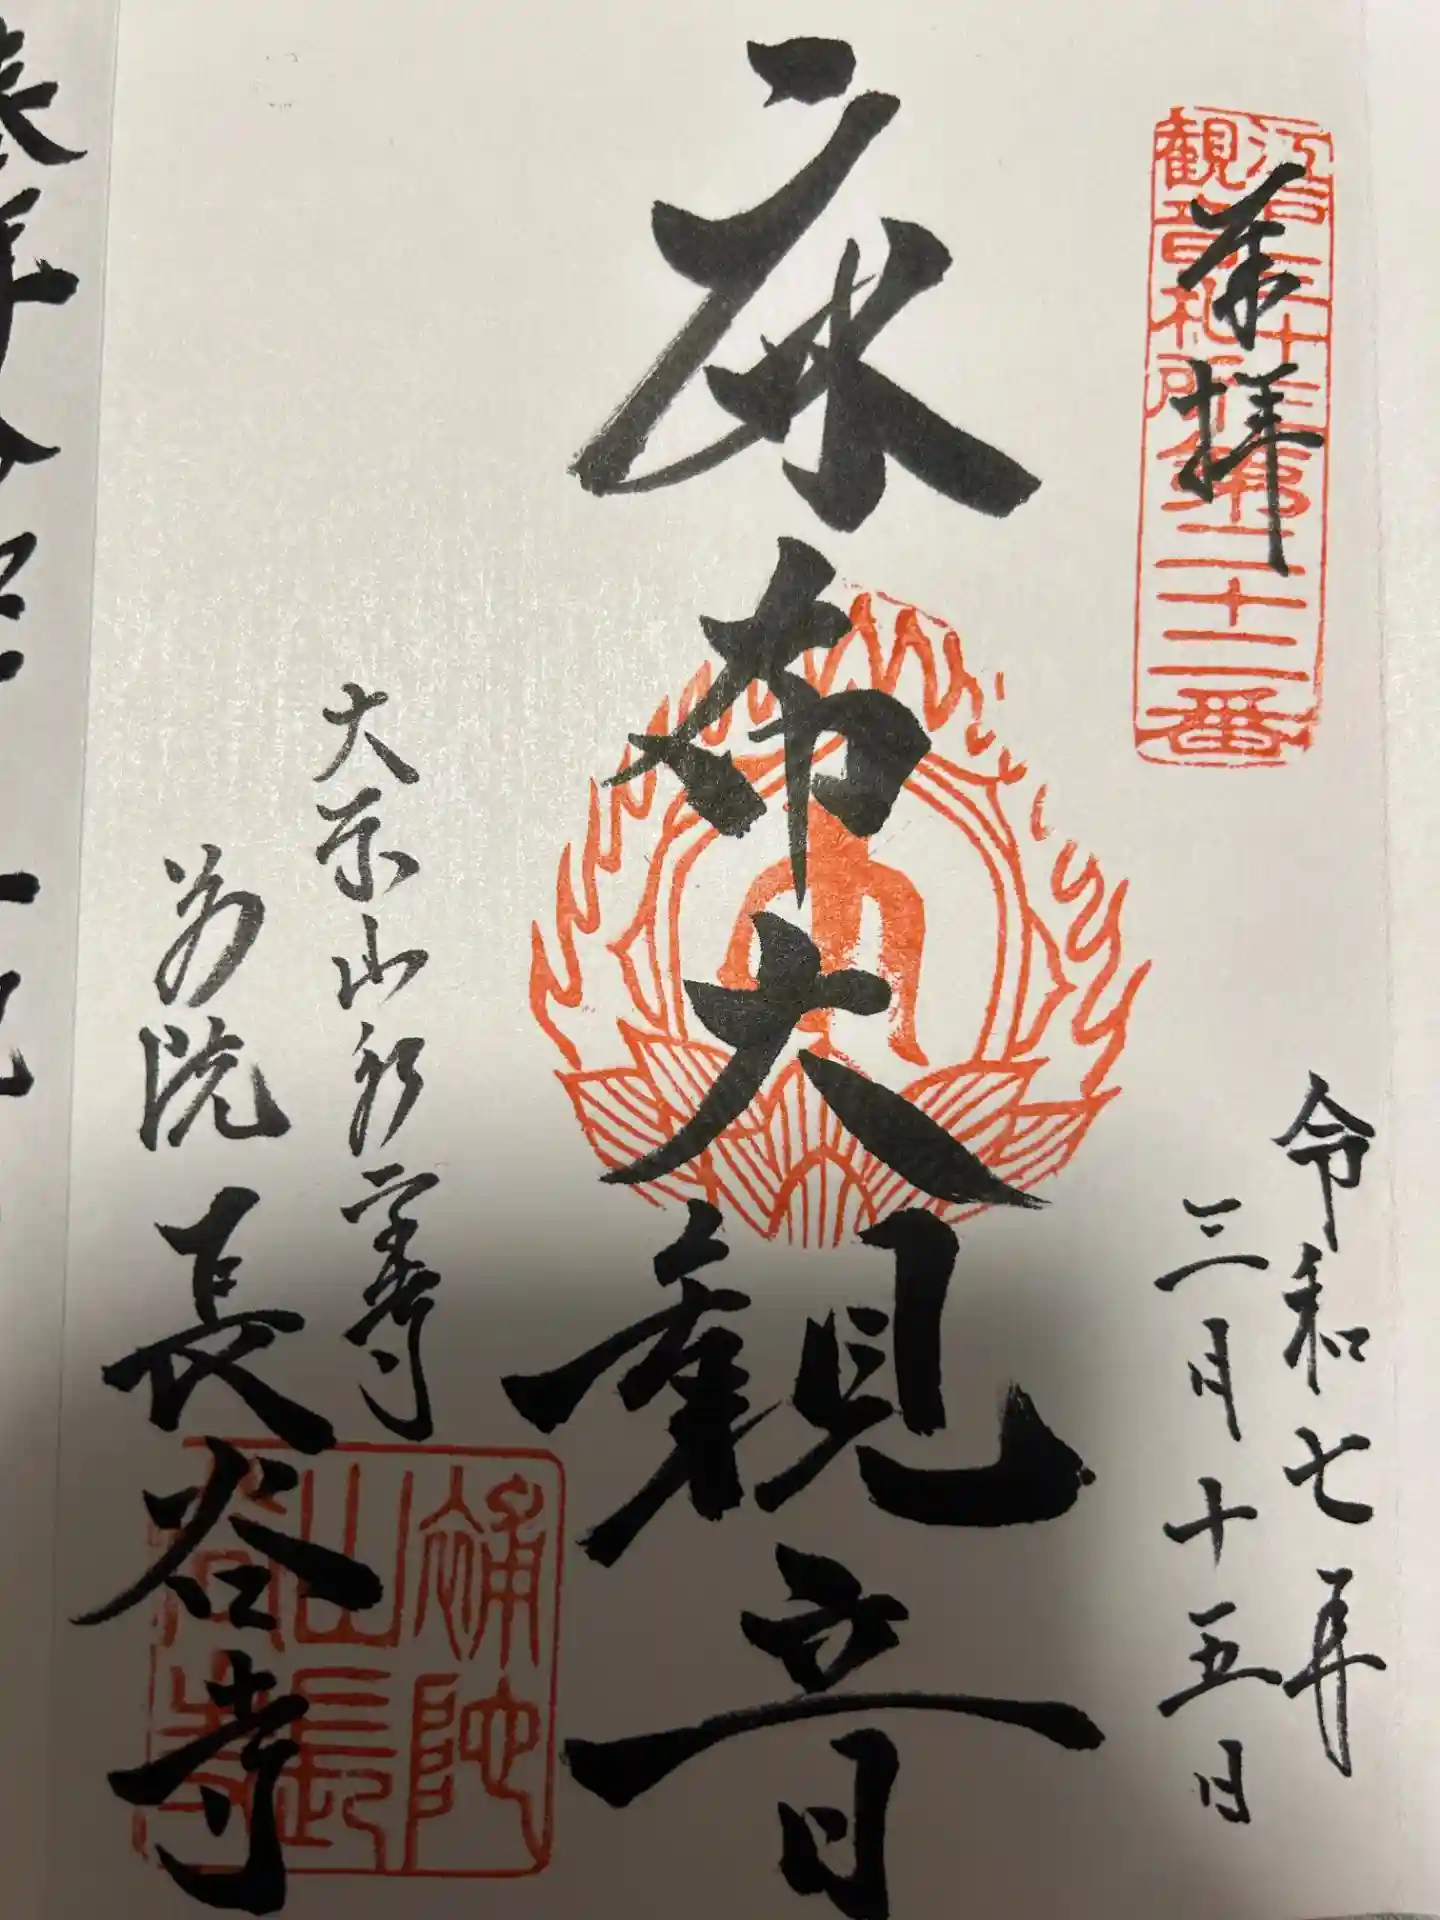 江戸三十三
観音札所第二十二番
奉拝
令和七年
三月十五日
麻布大観音
大本山永平寺
別院 長谷寺
補陀
山長
谷寺